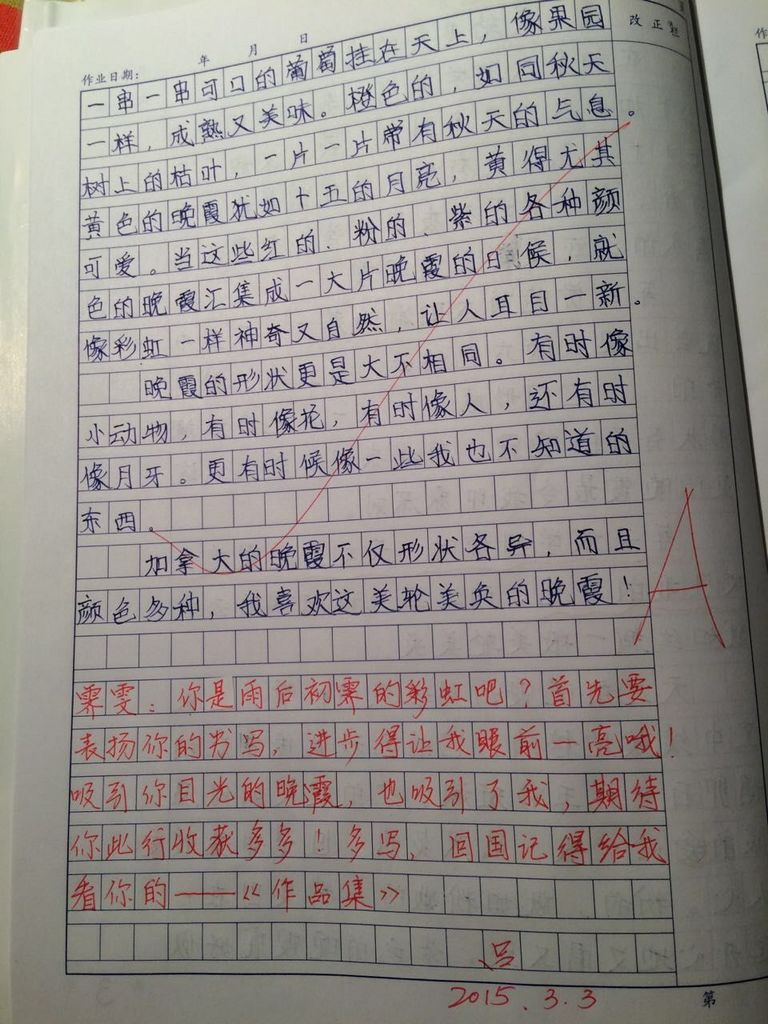 作业日期： 年 月 日
改正栏
一串一串可口的葡萄挂在天上，像果园
一样，成熟又美味。橙色的，如同秋天
树上的枯叶，一片一片带有秋天的气息。
黄色的晚霞犹如十五的月亮，黄得尤其
可爱。当这些红的、粉的、紫的各种颜
色的晚霞汇集成一大片晚霞的时候，就
像彩虹一样神奇又自然，让人耳目一新。
晚霞的形状更是大不相同。有时像
小动物，有时像花，有时像人，还有时
像月牙。更有时候像一些我也不知道的
东西。
加拿大的晚霞不仅形状各异，而且
颜色多种，我喜欢这美轮美奂的晚霞！
A
霁雯：你是雨后初霁的彩虹吧？首先要
表扬你的书写，进步得让我眼前一亮哦！
吸引你目光的晚霞，也吸引了我，期待
你此行收获多多！多写，回国记得给我
看你的——《作品集》
吕
2015.3.3
第